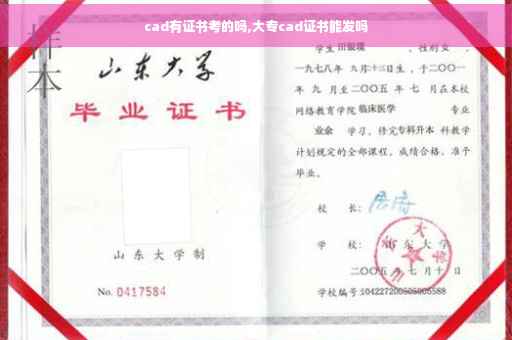 cad有证书考的吗,大专cad证书能发吗
样本
山东大学
毕业证书
山东大学制
No. 0417584
学生 田银环 ,性别女 ,
一九七八年 九月十三日生,于二〇〇一
年 九 月至二〇〇五 年 七 月在本校
网络教育学院 临床医学 专业
业余 学习,修完专科升本 科教学
计划规定的全部课程,成绩合格,准予
毕业。
校 长:
学 校: 山东大学
二〇〇五 年 七 月 十 日
学校编号:104227200505005588